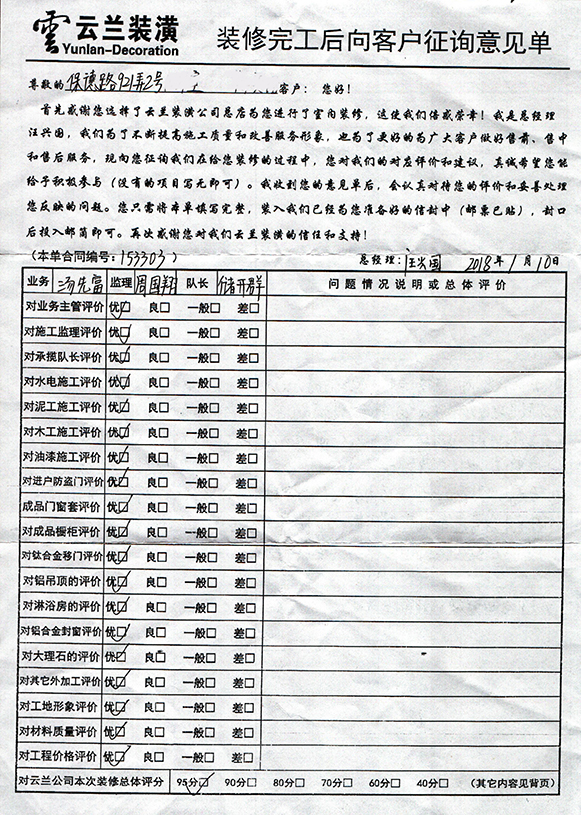 雲 云兰装潢
Yunlan-Decoration
装修完工后向客户征询意见单
尊敬的保德路921弄2号 客户： 您好！
首先感谢您选择了云兰装潢公司总店为您进行了室内装修，这使我们倍感荣幸！我是总经理
汪兴国，我们为了不断提高施工质量和改善服务形象，也为了更好的为广大客户做好售前、售中
和售后服务，现向您征询我们在给您装修的过程中，您对我们的对应评价和建议，真诚希望您能
给予积极参与（没有的项目写无即可）。我收到您的意见单后，会认真对待您的评价和妥善处理
您反映的问题。您只需将本单填写完整，装入我们已经为您准备好的信封中（邮票已贴），封口
后投入邮筒即可。再次感谢您对我们云兰装潢的信任和支持！
（本单合同编号：153303） 总经理：汪兴国 2018年1月10日
业务 汤先富 监理 周国翔 队长 储开群 问题情况说明或总体评价
对业务主管评价 优☑ 良□ 一般□ 差□
对施工监理评价 优☑ 良□ 一般□ 差□
对承揽队长评价 优☑ 良□ 一般□ 差□
对水电施工评价 优☑ 良□ 一般□ 差□
对泥工施工评价 优☑ 良□ 一般□ 差□
对木工施工评价 优☑ 良□ 一般□ 差□
对油漆施工评价 优☑ 良□ 一般□ 差□
对进户防盗门评价 优☑ 良□ 一般□ 差□
成品门窗套评价 优☑ 良□ 一般□ 差□
对成品橱柜评价 优☑ 良□ 一般□ 差□
对钛合金移门评价 优☑ 良□ 一般□ 差□
对铝吊顶的评价 优☑ 良□ 一般□ 差□
对淋浴房的评价 优☑ 良□ 一般□ 差□
对铝合金封窗评价 优☑ 良□ 一般□ 差□
对大理石的评价 优☑ 良□ 一般□ 差□
对其它外加工评价 优☑ 良□ 一般□ 差□
对工地形象评价 优☑ 良□ 一般□ 差□
对材料质量评价 优☑ 良□ 一般□ 差□
对工程价格评价 优☑ 良□ 一般□ 差□
对云兰公司本次装修总体评分 95分☑ 90分□ 80分□ 70分□ 60分□ 40分□ （其它内容见背页）